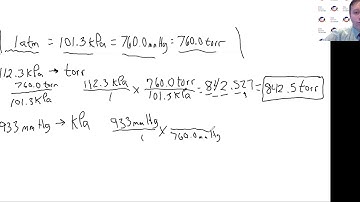 1 atm = 101.3 kPa = 760.0 mmHg = 760.0 torr
112.3 kPa → torr
760.0 torr / 101.3 kPa   112.3 kPa / 1 × 760.0 torr / 101.3 kPa = 842.527 = 842.5 torr
933 mmHg → kPa   933 mmHg / 1 × / 760.0 mmHg